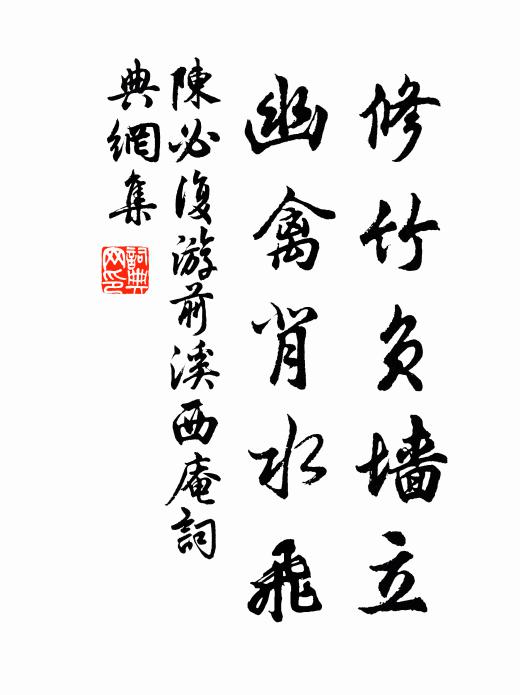 修竹负墙立
幽禽背水飛
陳必復游前溪西庵詞
典網集
詞典
网印